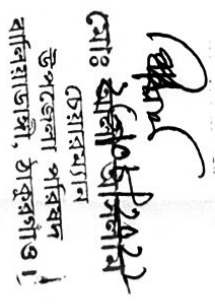 মোঃ আলী আসলাম
চেয়ারম্যান
উপজেলা পরিষদ
বালিয়াডাঙ্গী, ঠাকুরগাঁও।